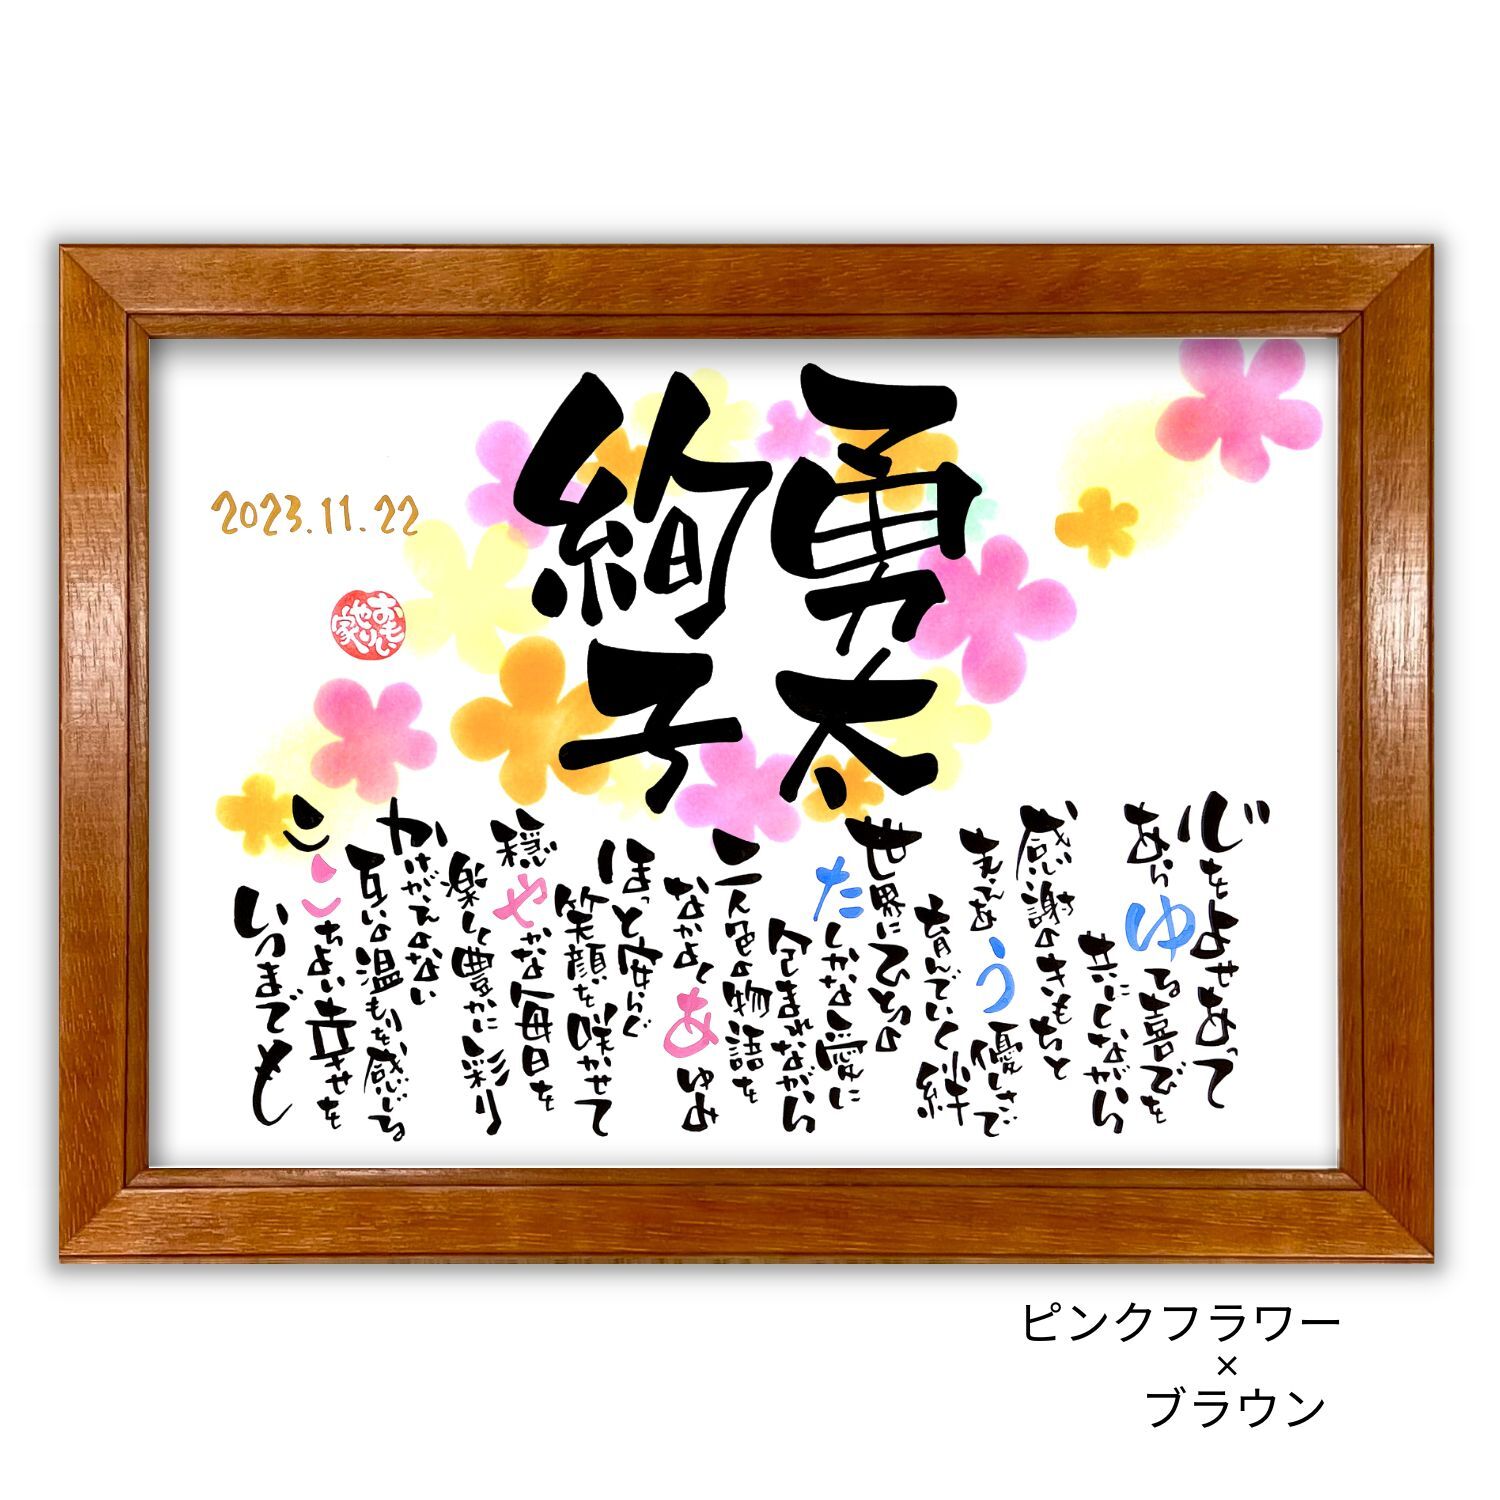 勇太
絢子
2023.11.22
おもいやり家
心をよせあって
あらゆる喜びを
共にしながら
感謝のきもちと
支えあう優しさで
育んでいく絆
世界にひとつの
たしかな愛に
包まれながら
二人色の物語を
なかよくあゆみ
ほっと安らぐ
笑顔を咲かせて
穏やかな毎日を
楽しく豊かに彩り
かけがえのない
互いの温もりを感じる
ここちよい幸せを
いつまでも
ピンクフラワー
×
ブラウン